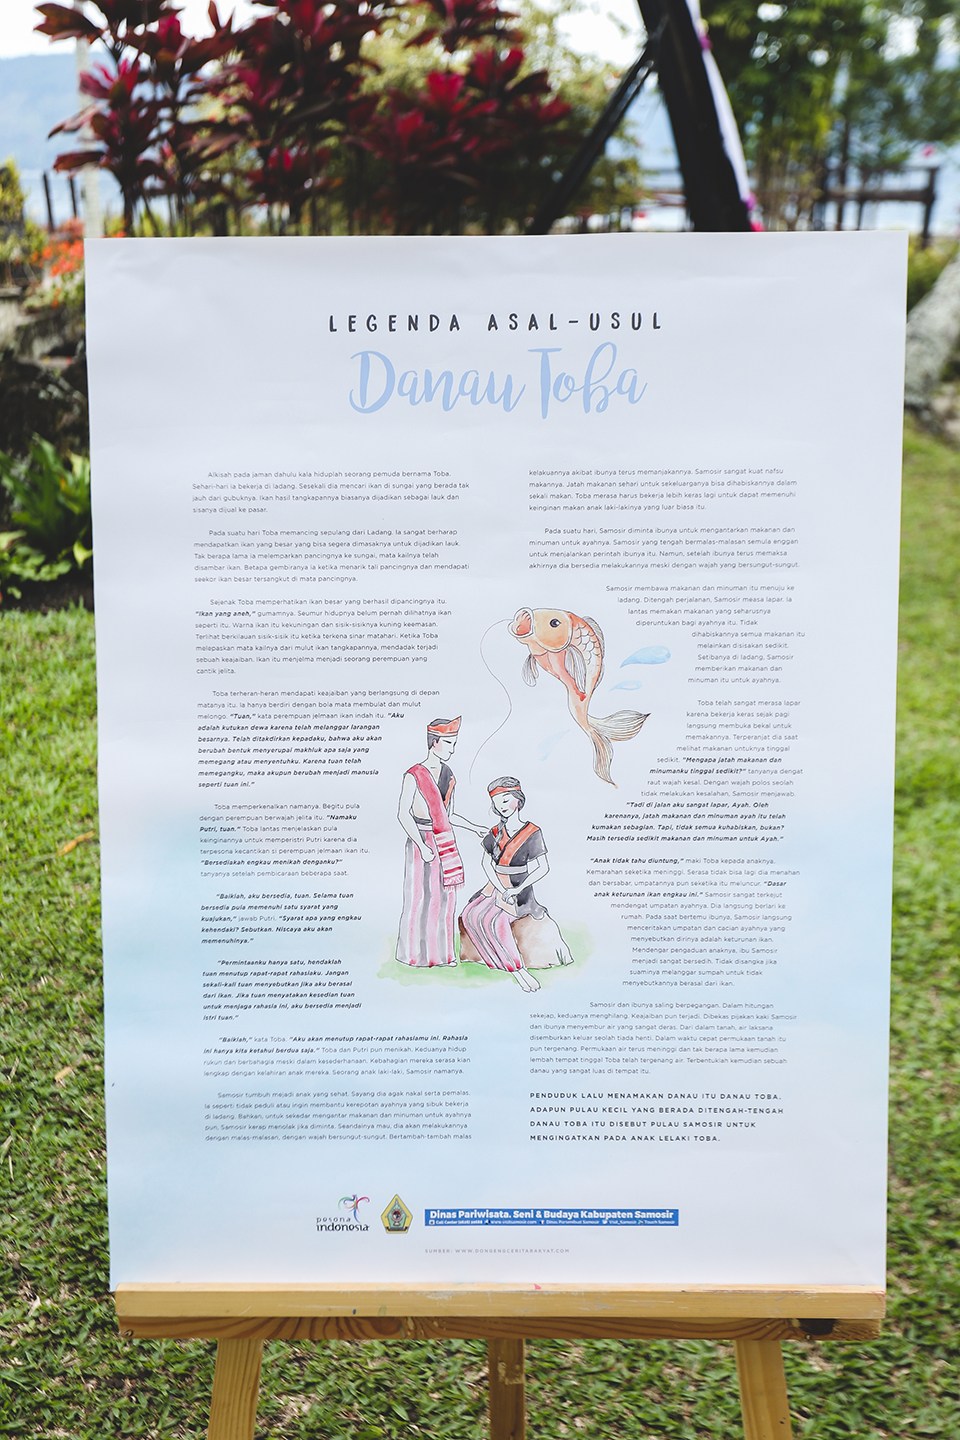 LEGENDA ASAL-USUL
Danau Toba
Alkisah pada jaman dahulu kala hiduplah seorang pemuda bernama Toba.
Sehari-hari ia bekerja di ladang. Sesekali dia mencari ikan di sungai yang berada tak
jauh dari gubuknya. Ikan hasil tangkapannya biasanya dijadikan sebagai lauk dan
sisanya dijual ke pasar.
Pada suatu hari Toba memancing sepulang dari Ladang. Ia sangat berharap
mendapatkan ikan yang besar yang bisa segera dimasaknya untuk dijadikan lauk.
Tak berapa lama ia melemparkan pancingnya ke sungai, mata kailnya telah
disambar ikan. Betapa gembiranya ia ketika menarik tali pancingnya dan mendapati
seekor ikan besar tersangkut di mata pancingnya.
Sejanak Toba memperhatikan ikan besar yang berhasil dipancingnya itu.
"Ikan yang aneh," gumamnya. Seumur hidupnya belum pernah dilihatnya ikan
seperti itu. Warna ikan itu kekuningan dan sisik-sisiknya kuning keemasan.
Terlihat berkilauan sisik-sisik itu ketika terkena sinar matahari. Ketika Toba
melepaskan mata kailnya dari mulut ikan tangkapannya, mendadak terjadi
sebuah keajaiban. Ikan itu menjelma menjadi seorang perempuan yang
cantik jelita.
Toba terheran-heran mendapati keajaiban yang berlangsung di depan
matanya itu. Ia hanya berdiri dengan bola mata membulat dan mulut
melongo. "Tuan," kata perempuan jelmaan ikan indah itu. "Aku
adalah kutukan dewa karena telah melanggar larangan
besarnya. Telah ditakdirkan kepadaku, bahwa aku akan
berubah bentuk menyerupai makhluk apa saja yang
memegang atau menyentuhku. Karena tuan telah
memegangku, maka akupun berubah menjadi manusia
seperti tuan ini."
Toba memperkenalkan namanya. Begitu pula
dengan perempuan berwajah jelita itu. "Namaku
Putri, tuan." Toba lantas menjelaskan pula
keinginannya untuk memperistri Putri karena dia
terpesona kecantikan si perempuan jelmaan ikan itu.
"Bersediakah engkau menikah denganku?"
tanyanya setelah pembicaraan beberapa saat.
"Baiklah, aku bersedia, tuan. Selama tuan
bersedia pula memenuhi satu syarat yang
kuajukan," jawab Putri. "Syarat apa yang engkau
kehendaki? Sebutkan. Niscaya aku akan
memenuhinya."
"Permintaanku hanya satu, hendaklah
tuan menutup rapat-rapat rahasiaku. Jangan
sekali-kali tuan menyebutkan jika aku berasal
dari ikan. Jika tuan menyatakan kesedian tuan
untuk menjaga rahasia ini, aku bersedia menjadi
istri tuan."
"Baiklah," kata Toba. "Aku akan menutup rapat-rapat rahasiamu ini. Rahasia
ini hanya kita ketahui berdua saja." Toba dan Putri pun menikah. Keduanya hidup
rukun dan berbahagia meski dalam kesederhanaan. Kebahagian mereka serasa kian
lengkap dengan kelahiran anak mereka. Seorang anak laki-laki, Samosir namanya.
Samosir tumbuh mejadi anak yang sehat. Sayang dia agak nakal serta pemalas.
Ia seperti tidak peduli atau ingin membantu kerepotan ayahnya yang sibuk bekerja
di ladang. Bahkan, untuk sekedar mengantar makanan dan minuman untuk ayahnya
pun, Samosir kerap menolak jika diminta. Seandainya mau, dia akan melakukannya
dengan malas-malasan, dengan wajah bersungut-sungut. Bertambah-tambah malas
kelakuannya akibat ibunya terus memanjakannya. Samosir sangat kuat nafsu
makannya. Jatah makanan sehari untuk sekeluarganya bisa dihabiskannya dalam
sekali makan. Toba merasa harus bekerja lebih keras lagi untuk dapat memenuhi
keinginan makan anak laki-lakinya yang luar biasa itu.
Pada suatu hari, Samosir diminta ibunya untuk mengantarkan makanan dan
minuman untuk ayahnya. Samosir yang tengah bermalas-malasan semula enggan
untuk menjalankan perintah ibunya itu. Namun, setelah ibunya terus memaksa
akhirnya dia bersedia melakukannya meski dengan wajah yang bersungut-sungut.
Samosir membawa makanan dan minuman itu menuju ke
ladang. Ditengah perjalanan, Samosir measa lapar. Ia
lantas memakan makanan yang seharusnya
diperuntukan bagi ayahnya itu. Tidak
dihabiskannya semua makanan itu
melainkan disisakan sedikit.
Setibanya di ladang, Samosir
memberikan makanan dan
minuman itu untuk ayahnya.
Toba telah sangat merasa lapar
karena bekerja keras sejak pagi
langsung membuka bekal untuk
memakannya. Terperanjat dia saat
melihat makanan untuknya tinggal
sedikit. "Mengapa jatah makanan dan
minumanku tinggal sedikit?" tanyanya dengat
raut wajah kesal. Dengan wajah polos seolah
tidak melakukan kesalahan, Samosir menjawab,
"Tadi di jalan aku sangat lapar, Ayah. Oleh
karenanya, jatah makanan dan minuman ayah itu telah
kumakan sebagian. Tapi, tidak semua kuhabiskan, bukan?
Masih tersedia sedikit makanan dan minuman untuk Ayah."
"Anak tidak tahu diuntung," maki Toba kepada anaknya.
Kemarahan seketika meninggi. Serasa tidak bisa lagi dia menahan
dan bersabar, umpatannya pun seketika itu meluncur. "Dasar
anak keturunan ikan engkau ini." Samosir sangat terkejut
mendengat umpatan ayahnya. Dia langsung berlari ke
rumah. Pada saat bertemu ibunya, Samosir langsung
menceritakan umpatan dan cacian ayahnya yang
menyebutkan dirinya adalah keturunan ikan.
Mendengar pengaduan anaknya, ibu Samosir
menjadi sangat bersedih. Tidak disangka jika
suaminya melanggar sumpah untuk tidak
menyebutkannya berasal dari ikan.
Samosir dan ibunya saling berpegangan. Dalam hitungan
sekejap, keduanya menghilang. Keajaiban pun terjadi. Dibekas pijakan kaki Samosir
dan ibunya menyembur air yang sangat deras. Dari dalam tanah, air laksana
disemburkan keluar seolah tiada henti. Dalam waktu cepat permukaan tanah itu
pun tergenang. Permukaan air terus meninggi dan tak berapa lama kemudian
lembah tempat tinggal Toba telah tergenang air. Terbentuklah kemudian sebuah
danau yang sangat luas di tempat itu.
PENDUDUK LALU MENAMAKAN DANAU ITU DANAU TOBA.
ADAPUN PULAU KECIL YANG BERADA DITENGAH-TENGAH
DANAU TOBA ITU DISEBUT PULAU SAMOSIR UNTUK
MENGINGATKAN PADA ANAK LELAKI TOBA.
pesona indonesia
Dinas Pariwisata, Seni & Budaya Kabupaten Samosir
SUMBER: WWW.DONGENGCERITARAKYAT.COM